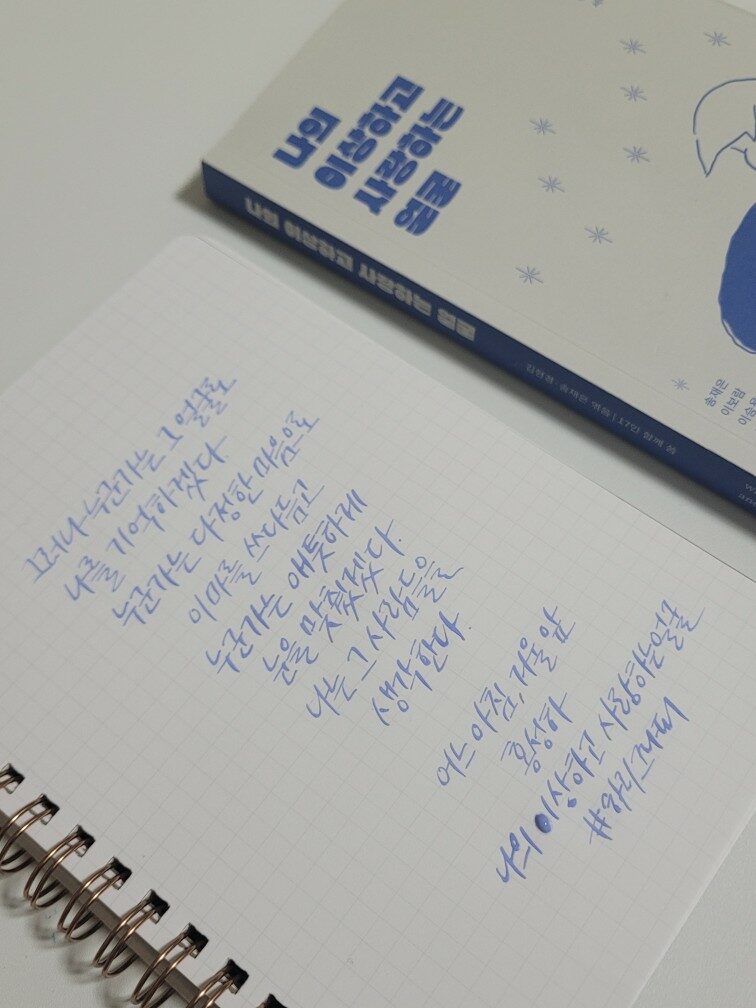 나의
이상하고
사랑하는
얼굴
나의 이상하고 사랑하는 얼굴
김현경·송재은 엮음 | 17인 함께 씀
송재은
이보람
그러나 누군가는 그 얼굴로
나를 기억하겠다.
누군가는 다정한 마음으로
이마를 쓰다듬고
누군가는 애틋하게
눈을 맞췄겠다.
나는 그 사람들을
생각한다.
어느 아침, 거울 앞
홍성하
나의 이상하고 사랑하는 얼굴